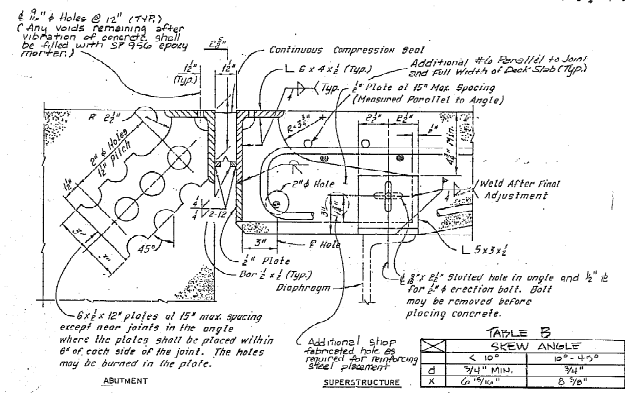 ¢ 9/16" ϕ Holes @ 12" (TYP.)
(Any voids remaining after
vibration of concrete shall
be filled with SP 956 epoxy
mortar.)
Continuous Compression Seal
L 6 x 4 x ½ (Typ.)
Additional #6 Parallel to Joint
and Full Width of Deck Slab (Typ.)
½" Plate at 15" Max. Spacing
(Measured Parallel to Angle)
1½"
(Typ.)
1½"
(Typ.
R 2½"
2" ϕ Holes
½" Pitch
45°
2" ϕ Hole
Min.
Weld After Final
Adjustment
2-12
3"
¢ Hole
½" Plate
Bar ½ x ½ (Typ.)
Diaphragm
L 5 x 3 x ½
Slotted hole in angle and ½" ⅊
for ½" ϕ erection bolt. Bolt
may be removed before
placing concrete.
6 x ½ x 12" plates at 15" max. spacing
except near joints in the angle
where the plates shall be placed within
6" of each side of the joint. The holes
may be burned in the plate.
Additional shop
fabricated hole as
required for reinforcing
steel placement
ABUTMENT
SUPERSTRUCTURE
TABLE B
SKEW ANGLE
< 10° 10° - 45°
d 3/4" MIN. 3/4"
x 6 15/16" 8 5/8"